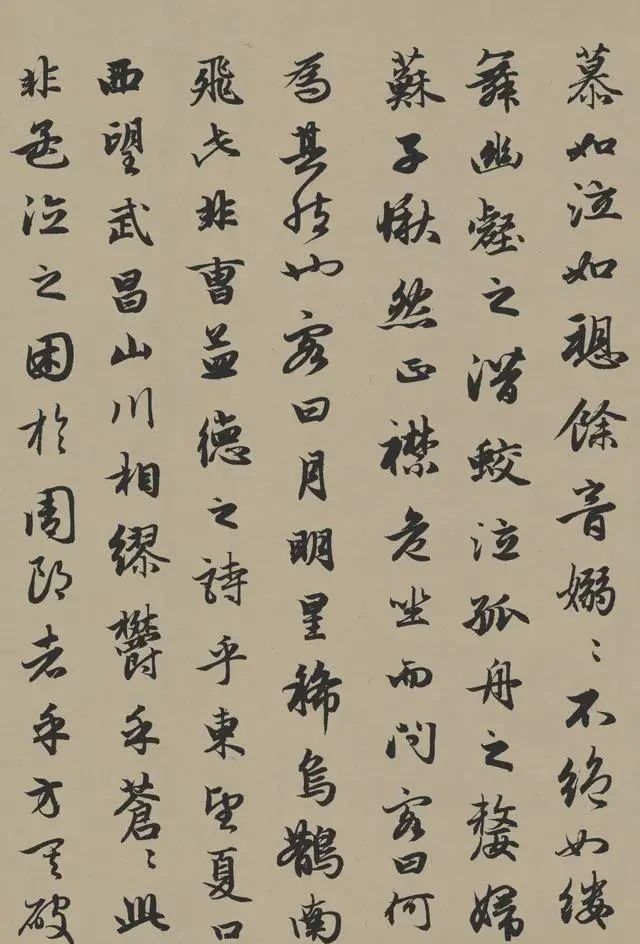 慕如泣如愬餘音嫋〻不絶如縷
舞幽壑之潛蛟泣孤舟之嫠婦
蘇子愀然正襟危坐而問客曰何
為其然也客曰月明星稀烏鵲南
飛此非曹孟德之詩乎東望夏口
西望武昌山川相繆鬱乎蒼〻此
非孟德之困於周郎者乎方其破